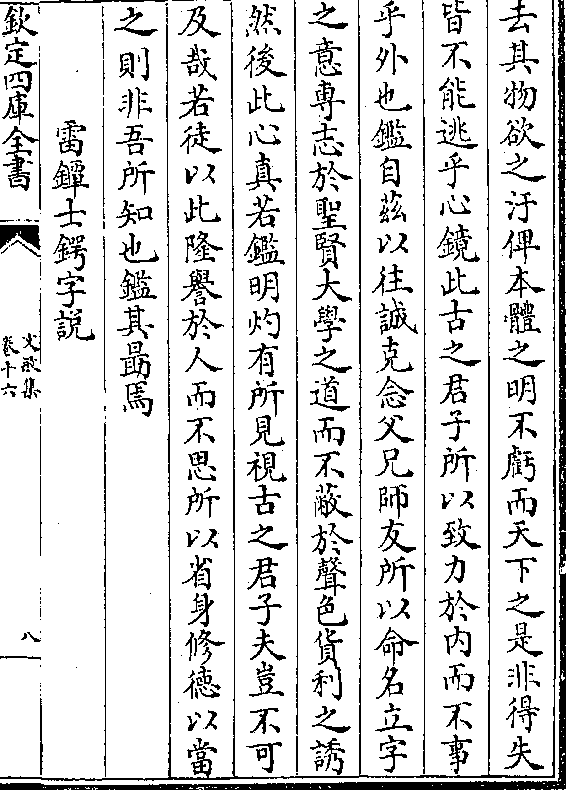 去其物欲之汙俾本體之明不虧而天下之是非得失
皆不能逃乎心鏡此古之君子所以致力於内而不事
乎外也鑑自兹以往誠克念父兄師友所以命名立字
之意專志於聖賢大學之道而不蔽於聲色貨利之誘
然後此心真若鑑明灼有所見視古之君子夫豈不可
及哉若徒以此隆譽於人而不思所以省身修德以當
之則非吾所知也鑑其勗焉
雷鐔士鍔字説
欽定四庫全書
文敬集
卷十六
八